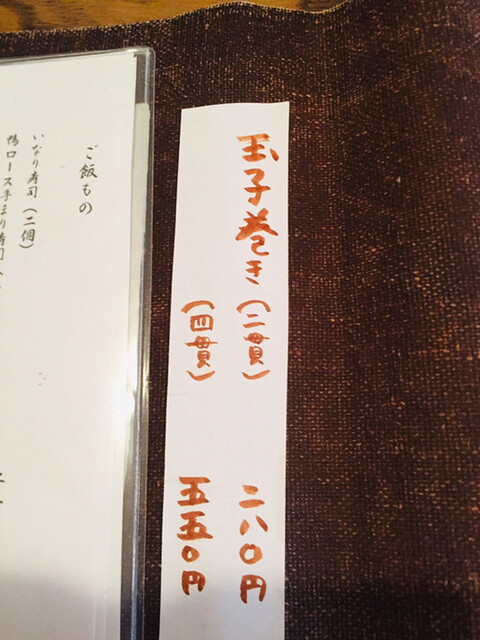 玉子巻き（二貫）　二八〇円
（四貫）　五五〇円
ご飯もの
いなり寿司（二個）
鴨ロース手まり寿司